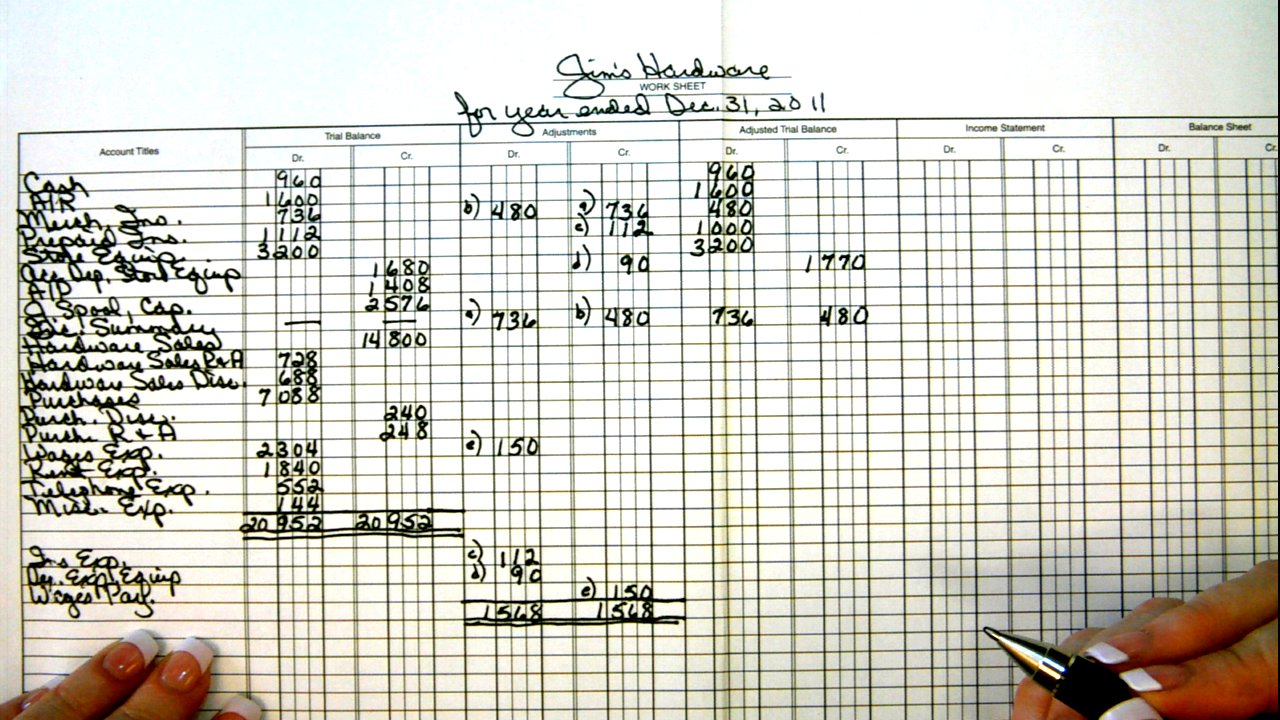 Jim's Hardware
WORK SHEET
for year ended Dec. 31, 2011
Account Titles Trial Balance Adjustments Adjusted Trial Balance Income Statement Balance Sheet
Dr. Cr. Dr. Cr. Dr. Cr. Dr. Cr. Dr. Cr.
Cash 960 960
A/R 1600 1600
Merch. Ins. 736 b) 480 a) 736 480
Prepaid Ins. 1112 c) 112 1000
Store Equip. 3200 3200
Acc. Dep. Store Equip 1680 d) 90 1770
A/P 1408
J. Spool, Cap. 2576
Inc. Summary — — a) 736 b) 480 736 480
Hardware Sales 14800
Hardware Sales R+A 728
Hardware Sales Disc. 688
Purchases 7088
Purch. Disc. 240
Purch. R + A 248
Wages Exp. 2304 e) 150
Rent Exp. 1840
Telephone Exp. 552
Misc. Exp. 144
20952 20952
Ins Exp. c) 112
Dep. Exp. Equip d) 90
Wages Pay. e) 150
1568 1568